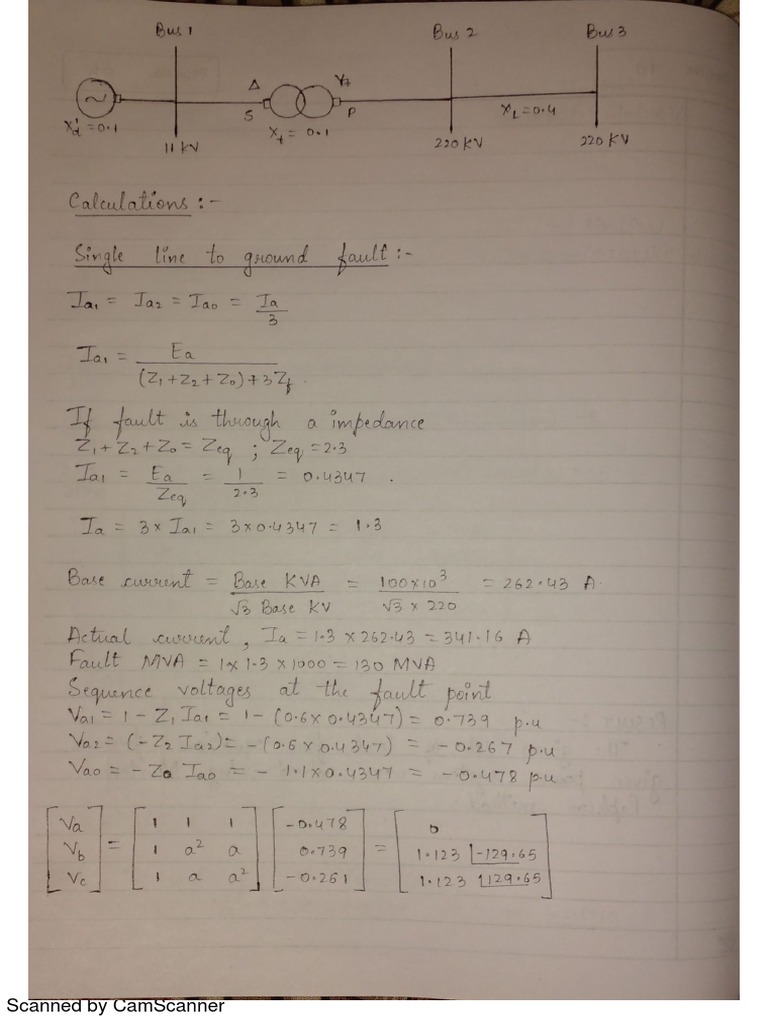 Bus 1 Bus 2 Bus 3
Δ
S P
X'd = 0.1 Xt = 0.1 XL = 0.4
11 kV 220 KV 220 KV
Calculations :-
Single line to ground fault :-
Ia1 = Ia2 = Ia0 = Ia/3
Ia1 = Ea/(Z1+Z2+Z0)+3Zf.
If fault is through a impedance
Z1+Z2+Z0 = Zeq ; Zeq = 2.3
Ia1 = Ea/Zeq = 1/2.3 = 0.4347 .
Ia = 3 × Ia1 = 3×0.4347 = 1.3
Base current = Base KVA/√3 Base KV = 100×10³/√3 × 220 = 262.43 A.
Actual current, Ia = 1.3 × 262.43 = 341.16 A
Fault MVA = 1× 1.3 × 1000 = 130 MVA
Sequence voltages at the fault point
Va1 = 1 - Z1 Ia1 = 1 - (0.6 × 0.4347) = 0.739 p.u
Va2 = (-Z2 Ia2) = -(0.6 × 0.4347) = -0.267 p.u
Va0 = - Z0 Ia0 = - 1.1×0.4347 = -0.478 p.u
[Va] = [1 1 1] [-0.478] = [0]
[Vb] [1 a² a] [0.739] [1.123 ∠-129.65]
[Vc] [1 a a²] [-0.261] [1.123 ∠129.65]
Scanned by CamScanner